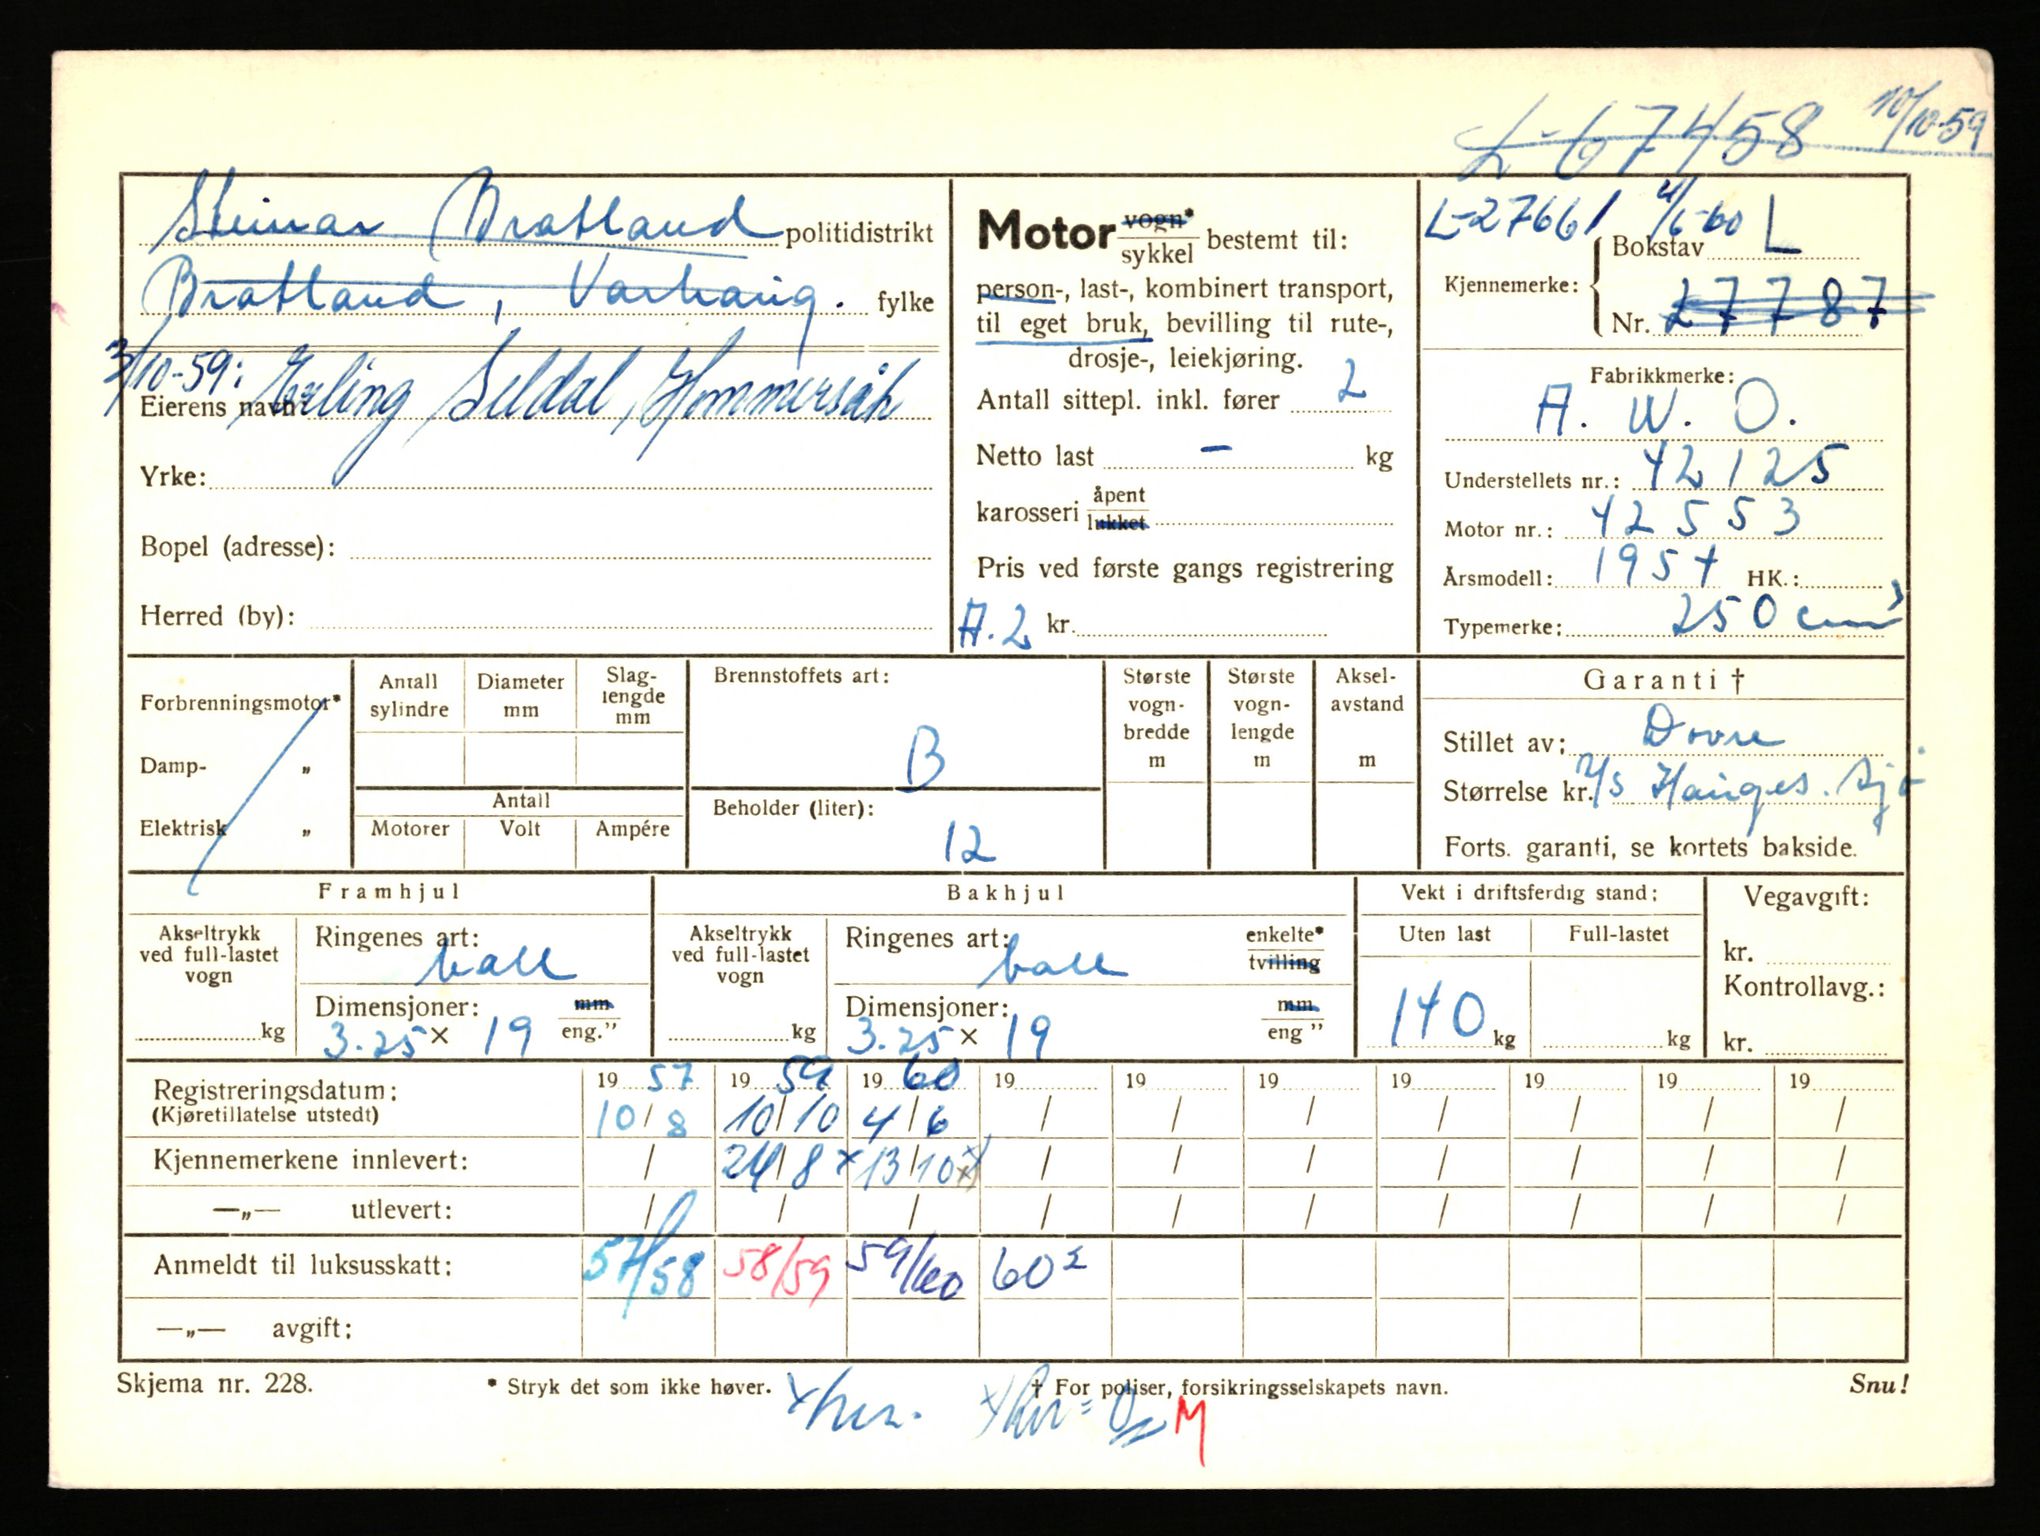 L-67458 10/10-59
Steinar Bratland politidistrikt
Bratland, Varhaug. fylke
3/10-59: Erling Seldal, Hommersåk
Eierens navn:
Yrke:
Bopel (adresse):
Herred (by):
Motor vogn*
sykkel bestemt til:
person-, last-, kombinert transport,
til eget bruk, bevilling til rute-,
drosje-, leiekjøring.
Antall sittepl. inkl. fører 2
Netto last - kg
karosseri åpent
lukket
Pris ved første gangs registrering
A.2 kr.
L-27661 4/6-60
Kjennemerke: Bokstav L
Nr. 27787
Fabrikkmerke:
A. W. O.
Understellets nr.: 42125
Motor nr.: 42553
Årsmodell: 1954 HK.:
Typemerke: 250 cm³
Forbrenningsmotor*
Damp- „
Elektrisk „
Antall sylindre
Diameter mm
Slag-lengde mm
Antall
Motorer Volt Ampére
Brennstoffets art:
B
Beholder (liter):
12
Største vogn-bredde m
Største vogn-lengde m
Aksel-avstand m
Garanti †
Stillet av: Dovre
Størrelse kr.
Forts. garanti, se kortets bakside.
Framhjul
Akseltrykk ved full-lastet vogn
kg
Ringenes art:
ball
Dimensjoner: mm
3.25 x 19 eng.”
Bakhjul
Akseltrykk ved full-lastet vogn
kg
Ringenes art: enkelte*
ball tvilling
Dimensjoner: mm
3.25 x 19 eng ”
Vekt i driftsferdig stand:
Uten last Full-lastet
140 kg kg
Vegavgift:
kr.
Kontrollavg.:
kr.
Registreringsdatum: 1957 1959 1960 19 19 19 19 19 19 19
(Kjøretillatelse utstedt) 10/8 10/10 4/6 / / / / / / /
Kjennemerkene innlevert: / 24/8 x 13/10 xx / / / / / / /
—„— utlevert: / / / / / / / / / /
Anmeldt til luksusskatt: 57/58 58/59 59/60 60²
—„— avgift:
Skjema nr. 228. * Stryk det som ikke høver. † For poliser, forsikringsselskapets navn. Snu!
M